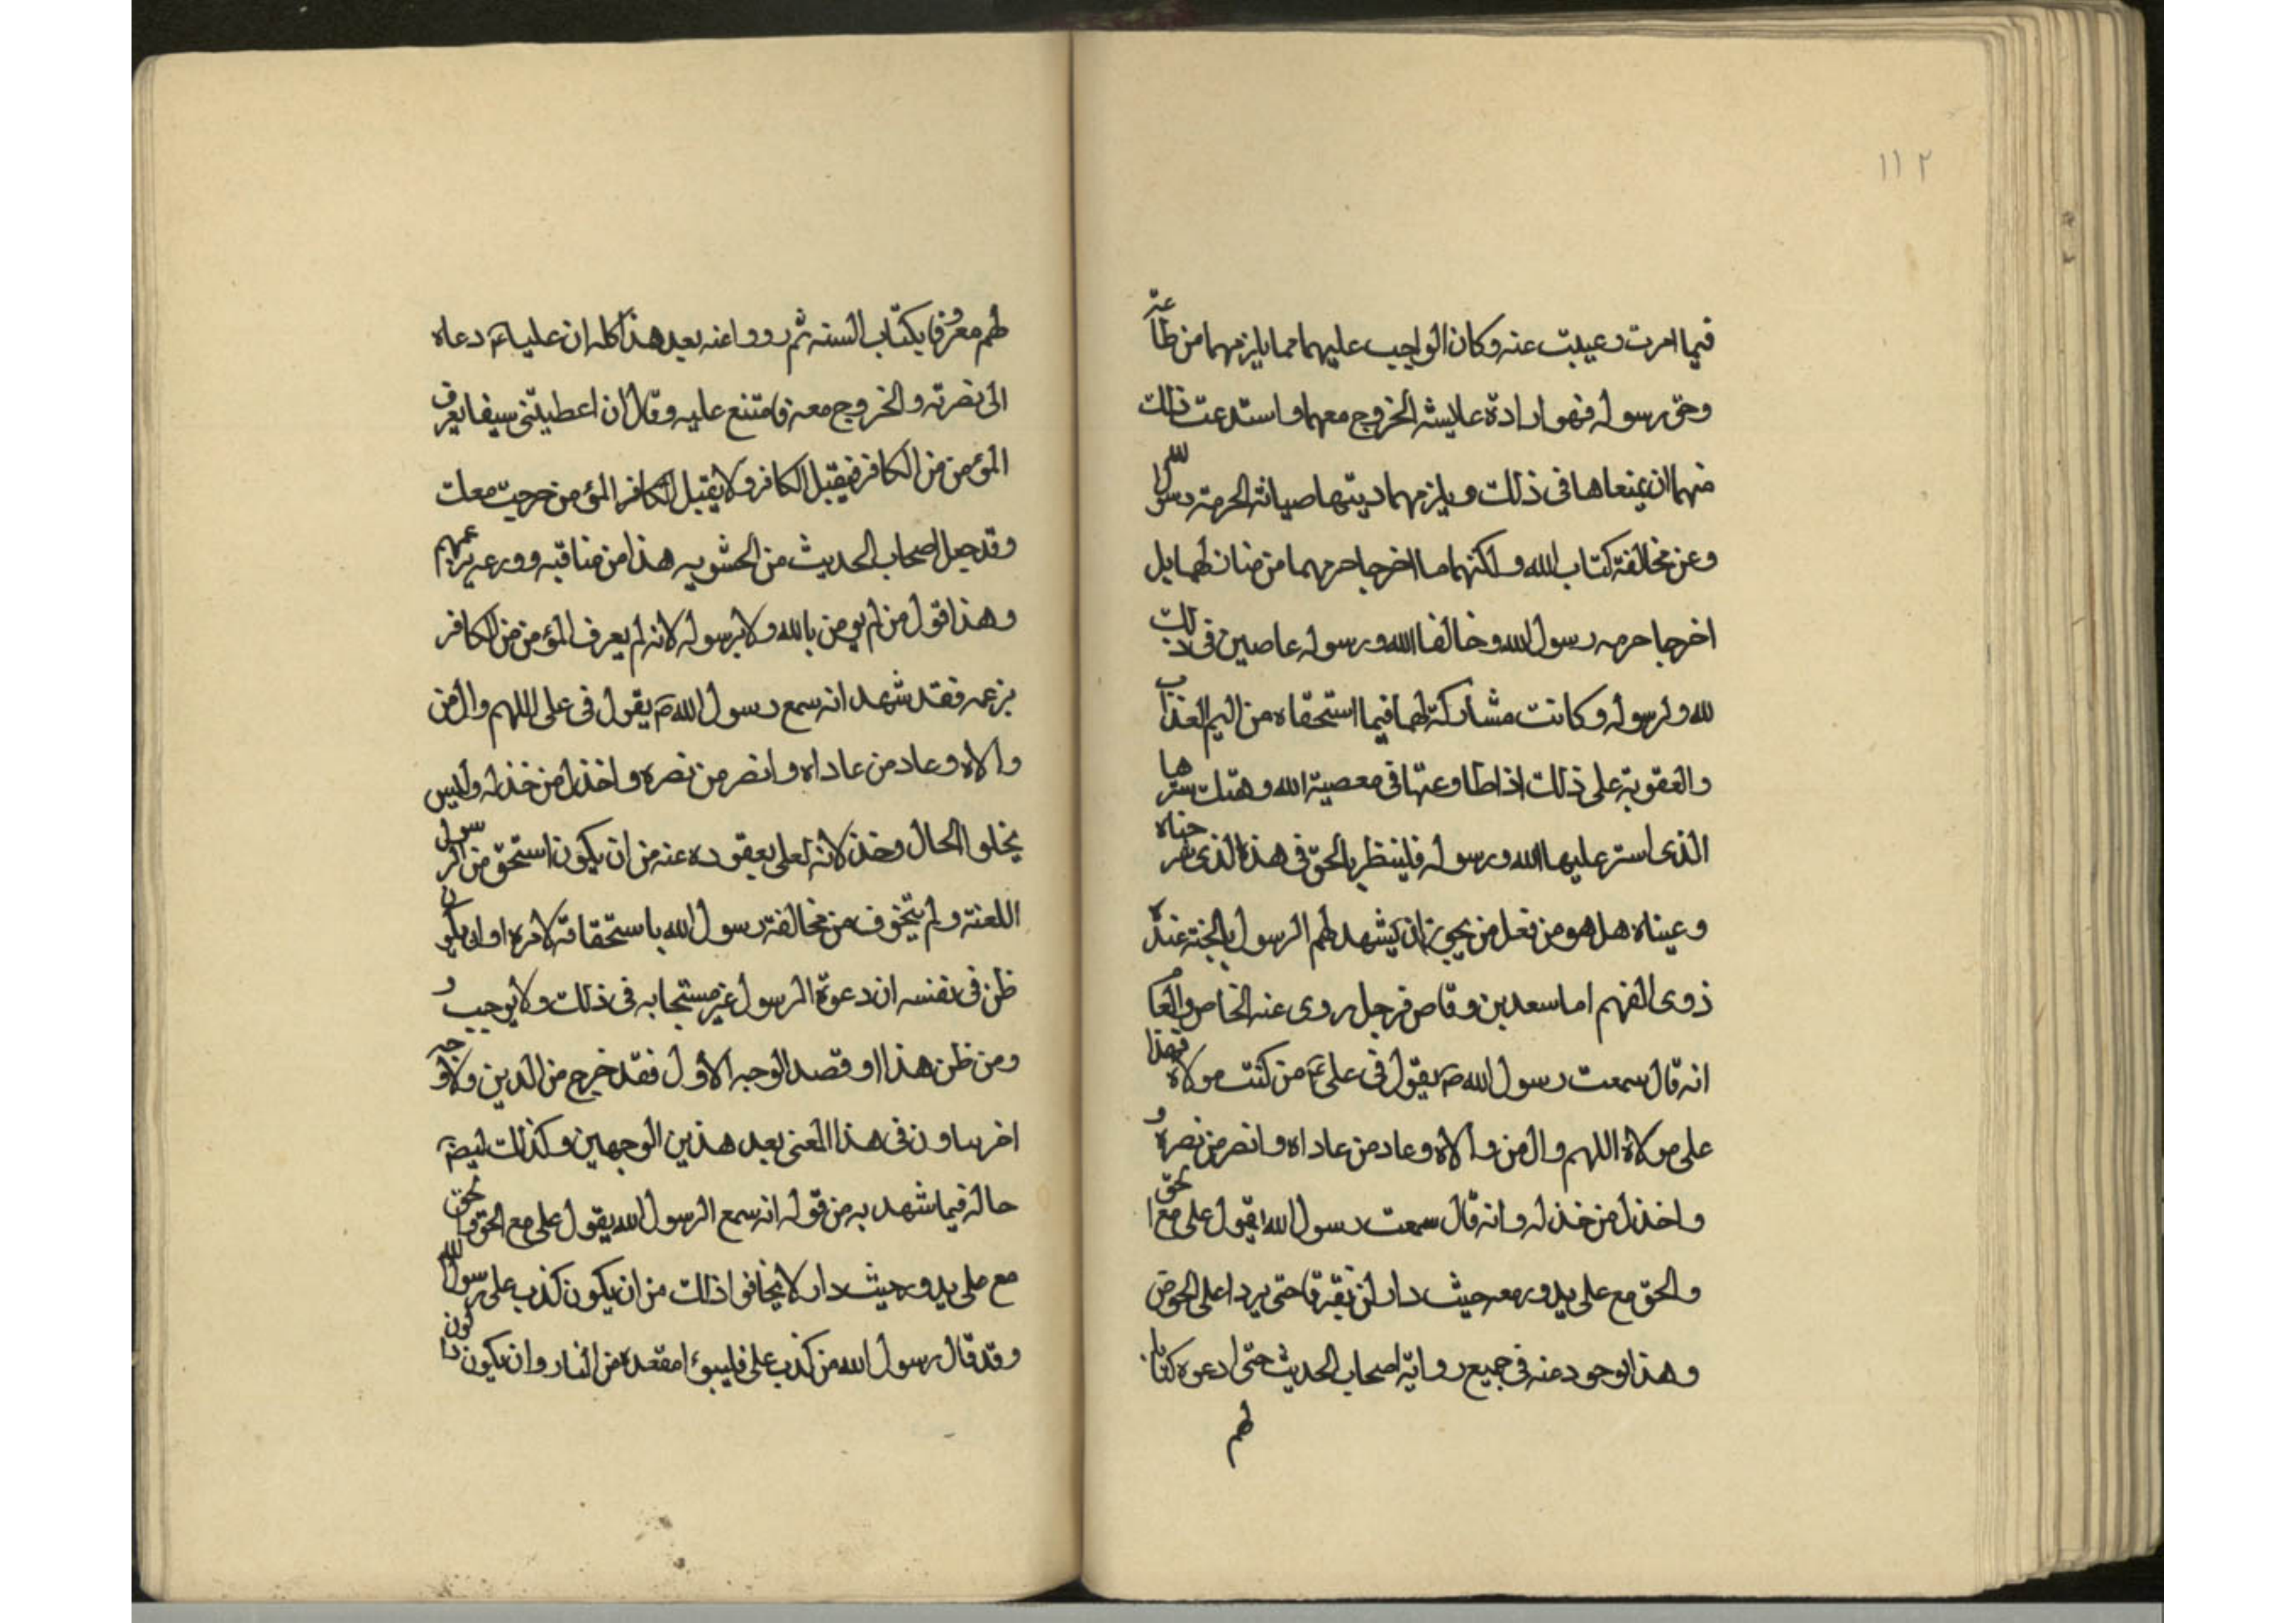 ١١٢
فيما امرت وعيبت عنه وكان الواجب عليهما مما يلزمهما من طاعته
وحق رسوله فهو ارادة عايشه الخروج معهما واستدعت ذلك
منهما ان يمنعاها فى ذلك ويلزمهما ديتها صيانة الحرمة رسول الله
وعن مخالفة كتاب الله ولكنهما ما اخرجا حرمهما من منازلهما بل
اخرجا حرمه رسول الله وخالفا الله ورسوله عاصيين فى ذلك
لله ولرسوله وكانت مشاركة لهما فيما استحقاه من اليم العذاب
والعقوبة على ذلك اذ اطاوعتها فى معصية الله وهتك سترها
الذى استر عليها الله ورسوله فلينظر بالحق فى هذا الذى شرحناه
وعيناه هل هو من فعل من يجوز ان يشهد لهم الرسول بالجنة عند
ذوى الفهم اما سعد بن وقاص فرجل روى عنه الخاص والعام
انه قال سمعت رسول الله ص يقول فى على ع من كنت مولاه فهذا
على مولاه اللهم وال من والاه وعاد من عاداه وانصر من نصره و
واخذل من خذله وانه قال سمعت رسول الله يقول على مع الحق
والحق مع على يدور معه حيث دار لن يفترقا حتى يردا على الحوض
وهذا موجود عنه فى جميع رواية اصحاب الحديث حتى ادعوه كتابا
لهم
لهم معروفا بكتاب السنه ثم رووا عنه بعد هذا كله ان عليا ع دعاه
الى نصرته والخروج معه فامتنع عليه وقال ان اعطيتنى سيفا يعرف
المؤمن من الكافر فيقتل الكافر ولا يقتل الكافر المؤمن خرجت معك
وقد جعل اصحاب الحديث من الحشويه هذا من مناقبه وورعه بزعمهم
وهذا قول من لم يومن بالله ولا برسوله لانه لم يعرف المؤمن من الكافر
بزعمه فقد شهد انه سمع رسول الله ص يقول فى على اللهم وال من
والاه وعاد من عاداه وانصر من نصره واخذل من خذله وليس
يخلوا الحال وخذلانه لعلى بعقوده عنه من ان يكون استحق من الرسول
اللعنة ولم يتخوف من مخالفة رسول الله باستحقاقة لامره او ان يكون
ظن فى نفسه ان دعوة الرسول غير مستجابه فى ذلك ولا يوجب و
ومن ظن هذا او قصد الوجه الاول فقد خرج من الدين ولا وجه
اخر يساون فى هذا المعنى بعد هذين الوجهين وكذلك ايضا
حاله فيما شهد به من قوله انه سمع الرسول الله يقول على مع الحق والحق
مع على يدور حيث دار لا يخافوا ذلك من ان يكون كذب على رسول الله
وقد قال رسول الله من كذب على فليبوء امقعده من النار وان يكون